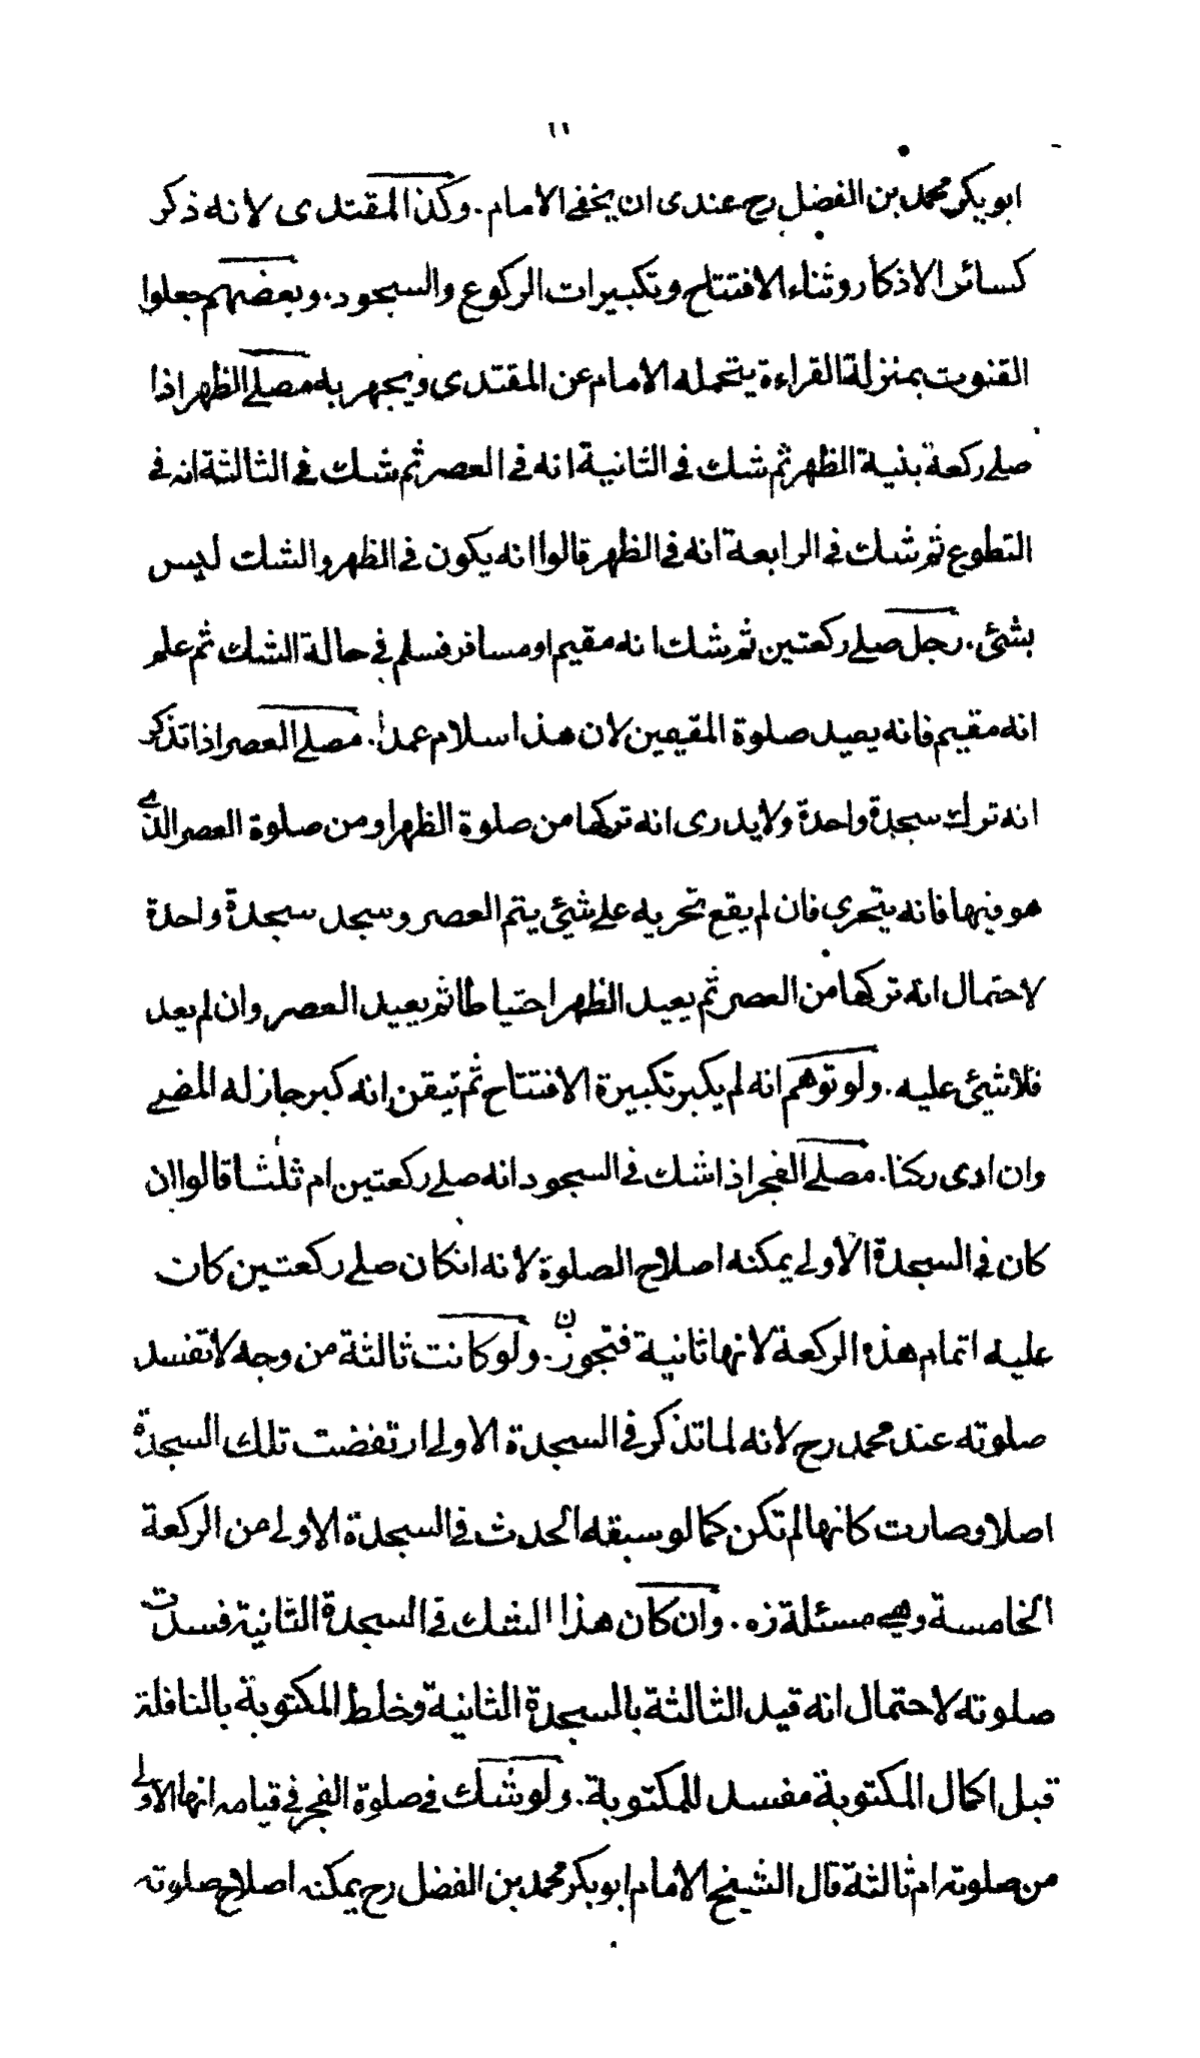 ١١
ابوبكر محمد بن الفضل رح عندى ان يخفى الامام. وكذا المقتدى لانه ذكر
كسائر الاذكار وثناء الافتتاح وتكبيرات الركوع والسجود. وبعضهم جعلوا
القنوت بمنزلة القراءة يتحمله الامام عن المقتدى ويجهر به مصلے الظهر اذا
صلے ركعة بنية الظهر ثم شك فى الثانية انه فى العصر ثم شك فى الثالثة انه فى
التطوع ثم شك فى الرابعة انه فى الظهر قالوا انه يكون فى الظهر والشك ليس
بشئ. رجل صلے ركعتين ثم شك انه مقيم او مسافر فسلم فى حالة الشك ثم علم
انه مقيم فانه يعيد صلوة المقيمين لان هذا سلام عمدا. مصلے العصر اذا تذكر
انه ترك سجدة واحدة ولا يدرى انه تركها من صلوة الظهر او من صلوة العصر الذى
هو فيها فانه يتحرى فان لم يقع تحريه على شيئ يتم العصر وسجد سجدة واحدة
لاحتمال انه تركها من العصر ثم يعيد الظهر احتياطا ثم يعيد العصر وان لم يعد
فلا شيئ عليه. ولو توهم انه لم يكبر تكبيرة الافتتاح ثم تيقن انه كبر جاز له المضے
وان ادى ركنا. مصلے الفجر اذا شك فى السجود انه صلے ركعتين ام ثلثا قالوا ان
كان فى السجدة الاولى يمكنه اصلاح الصلوة لانه انكان صلے ركعتين كان
عليه اتمام هذه الركعة لانها ثانية فتجوز. ولو كانت ثالثة من وجه لا تفسد
صلوته عند محمد رح لانه لما تذكر فى السجدة الاولى ارتفضت تلك السجدة
اصلا وصارت كانها لم تكن كما لو سبقه الحدث فى السجدة الاولى من الركعة
الخامسة وهى مسئلة زه. وان كان هذا الشك فى السجدة الثانية فسدت
صلوته لاحتمال انه قيد الثالثة بالسجدة الثانية وخلط المكتوبة بالنافلة
قبل اكمال المكتوبة مفسد للمكتوبة. ولو شك فى صلوة الفجر فى قيامه انها الاولى
من صلوته ام ثالثة قال الشيخ الامام ابوبكر محمد بن الفضل رح يمكنه اصلاح صلوته